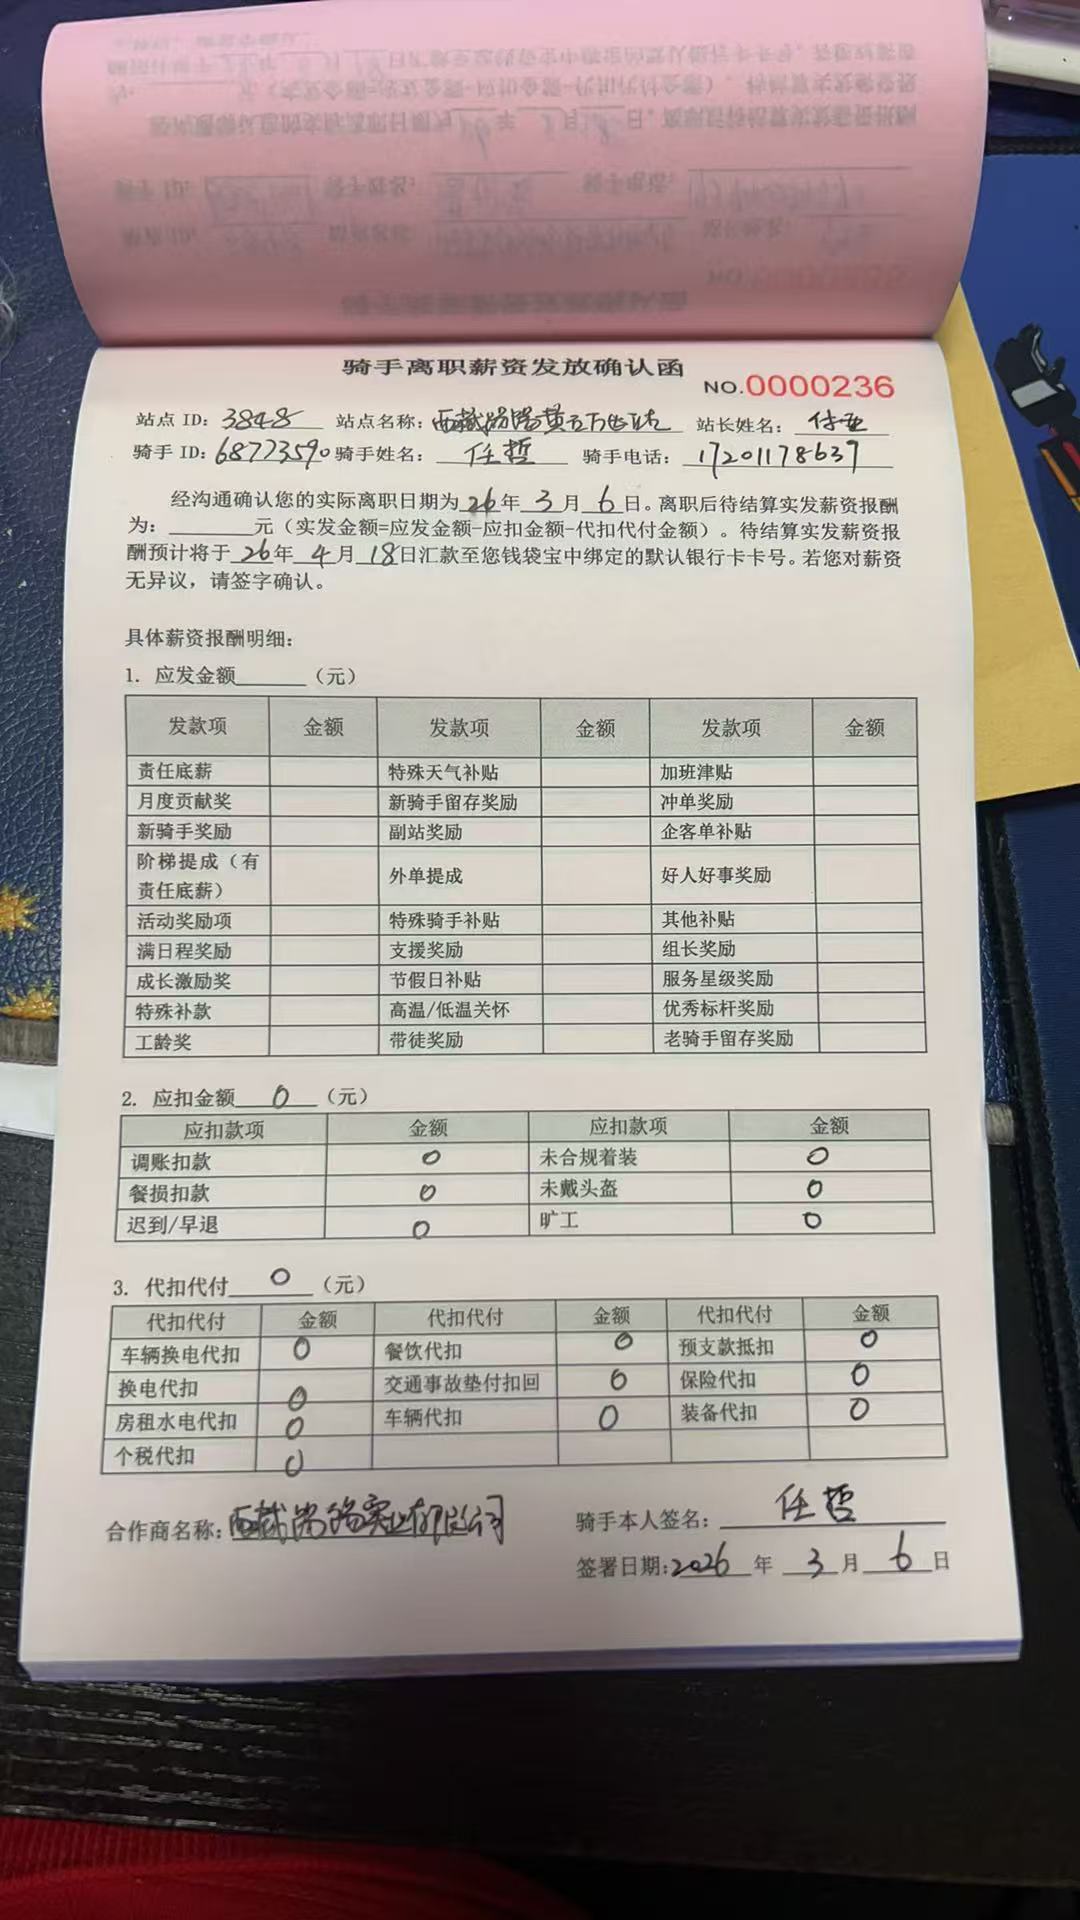 骑手离职薪资发放确认函
NO.0000236
站点 ID: 3848 站点名称: 西藏 站长姓名:
骑手 ID: 68773590 骑手姓名: 任哲 骑手电话: 17201178637
经沟通确认您的实际离职日期为26年3月6日。离职后待结算实发薪资报酬
为:______元（实发金额=应发金额-应扣金额-代扣代付金额）。待结算实发薪资报
酬预计将于26年4月18日汇款至您钱袋宝中绑定的默认银行卡卡号。若您对薪资
无异议，请签字确认。
具体薪资报酬明细:
1. 应发金额______（元）
发款项 金额 发款项 金额 发款项 金额
责任底薪 特殊天气补贴 加班津贴
月度贡献奖 新骑手留存奖励 冲单奖励
新骑手奖励 副站奖励 企客单补贴
阶梯提成（有
责任底薪） 外单提成 好人好事奖励
活动奖励项 特殊骑手补贴 其他补贴
满日程奖励 支援奖励 组长奖励
成长激励奖 节假日补贴 服务星级奖励
特殊补款 高温/低温关怀 优秀标杆奖励
工龄奖 带徒奖励 老骑手留存奖励
2. 应扣金额 0 （元）
应扣款项 金额 应扣款项 金额
调账扣款 0 未合规着装 0
餐损扣款 0 未戴头盔 0
迟到/早退 0 旷工 0
3. 代扣代付 0 （元）
代扣代付 金额 代扣代付 金额 代扣代付 金额
车辆换电代扣 0 餐饮代扣 0 预支款抵扣 0
换电代扣 0 交通事故垫付扣回 0 保险代扣 0
房租水电代扣 0 车辆代扣 0 装备代扣 0
个税代扣 0
合作商名称: 西藏 实业有限公司 骑手本人签名: 任哲
签署日期: 2026 年 3 月 6 日